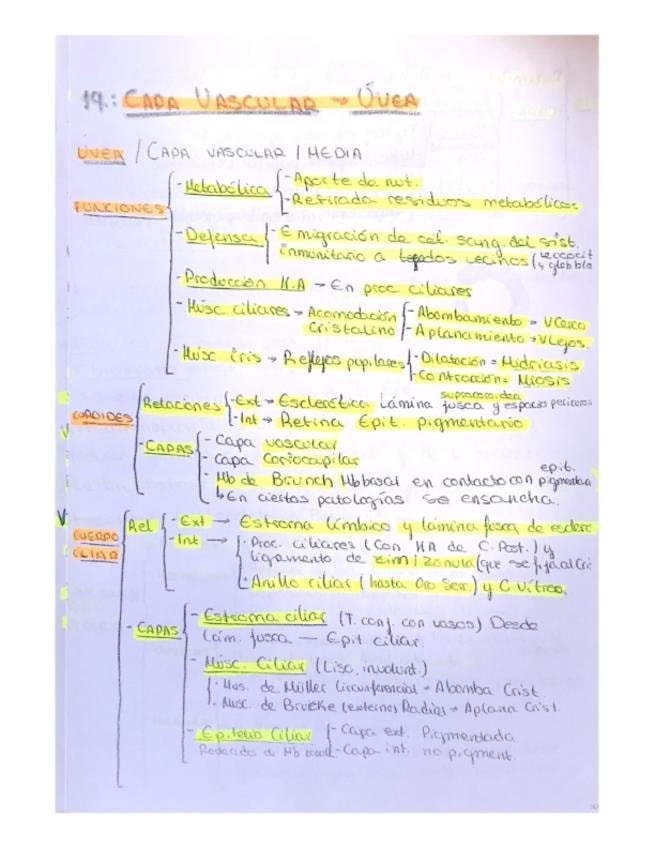 19.: CAPA VASCULAR → ÚVEA
ÚVEA / CAPA VASCULAR / MEDIA
FUNCIONES
- Metabólica
- Aporte de nut.
- Retirada residuos metabólicos
- Defensa
- Emigración de cel. sang. del sist.
inmunitario a tejidos vecinos (leucocit
y glób bla
- Producción H.A → En proc ciliares
- Músc ciliares → Acomodación
cristalino
- Abombamiento → V Cerca
- Aplanamiento → V Lejos.
- Músc iris → Reflejos pupilares
- Dilatación = Midriasis
- Contracción = Miosis
COROIDES
Relaciones
- Ext → Esclerótica Lámina fusca y espacio pericoroi
supracoroidea
- Int → Retina Epit. Pigmentario
- CAPAS
- Capa vascular
- Capa Coriocapilar
- Mb de Brunch Mb basal en contacto con epit.
pigmentari
↳ En ciertas patologías se ensancha.
CUERPO
CILIAR
Rel
- Ext → Estroma límbico y lámina fusca de esclero
- Int →
· Proc. ciliares (Con HA de C. Post.) y
ligamento de zinn / zónula (que se fija al Cri
· Anillo ciliar (hasta Ora Serr.) y C. Vítreo.
- CAPAS
- Estroma ciliar (T. conj. con vasos) Desde
Lám. fusca — Epit ciliar.
- Músc. Ciliar (Liso, involunt.)
· Mus. de Müller Circunferencial → Abomba Crist.
· Musc. de Brucke (externo) Radial → Aplana Crist.
- Epitelio Ciliar
Rodeado de Mb basal
- Capa ext. Pigmentada
- Capa int. no pigment.